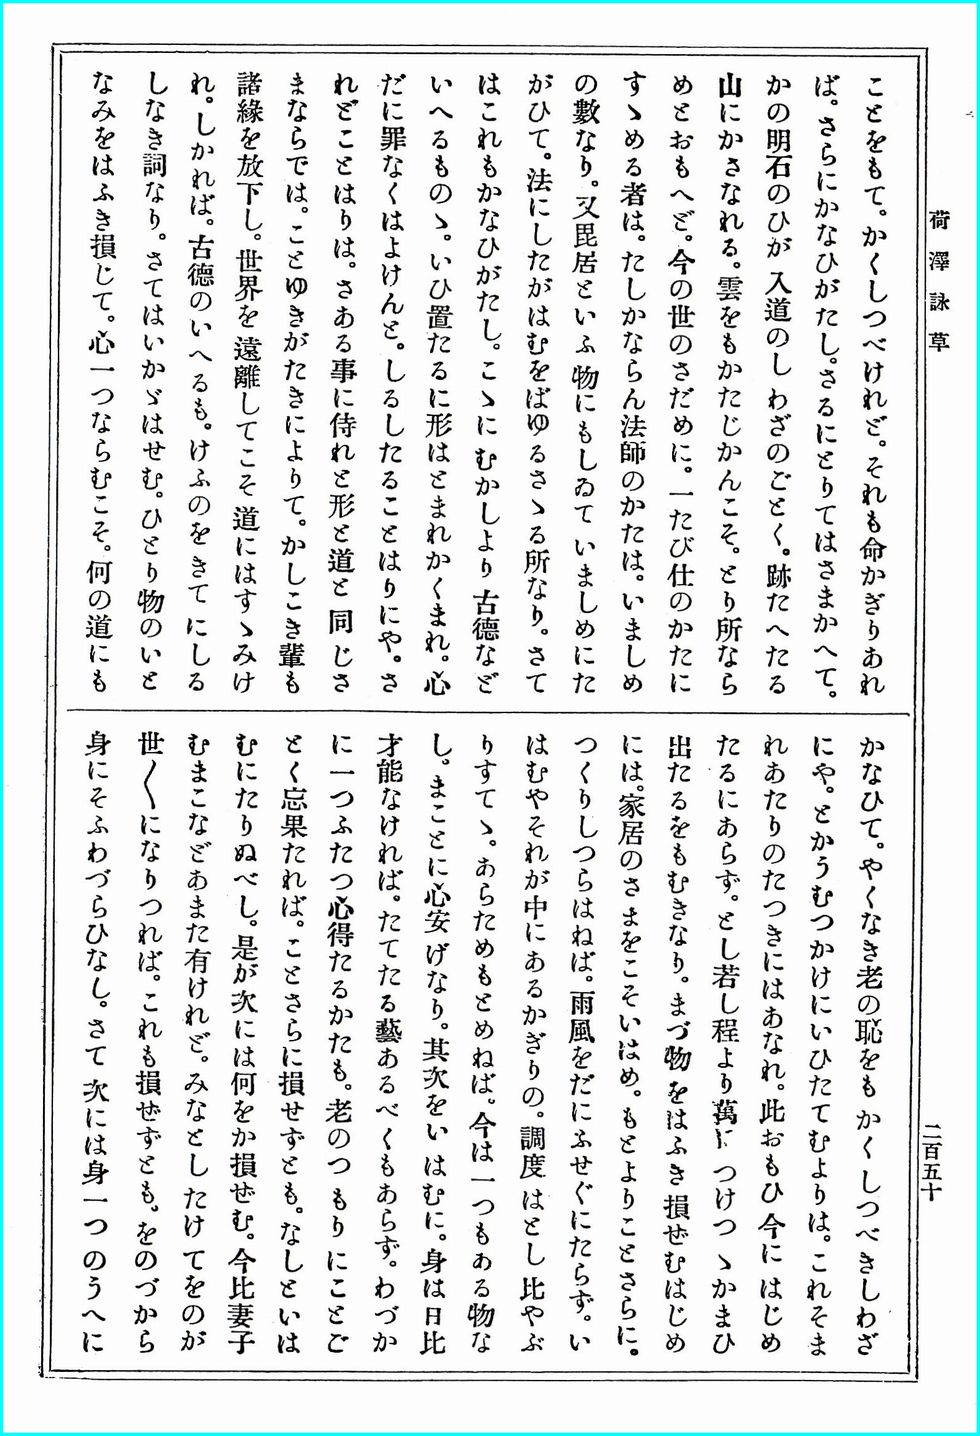 荷澤詠草
ことをもて。かくしつべけれど。それも命かぎりあれ
ば。さらにかなひがたし。さるにとりてはさまかへて。
かの明石のひが入道のしわざのごとく。跡たへたる
山にかさなれる。雲をもかたじかんこそ。とり所なら
めとおもへど。今の世のさだめに。一たび仕のかたに
すゝめる者は。たしかならん法師のかたは。いましめ
の數なり。又毘居といふ物にもしゐていましめにた
がひて。法にしたがはむをばゆるさゝる所なり。さて
はこれもかなひがたし。こゝにむかしより古德など
いへるものゝ。いひ置たるに形はとまれかくまれ。心
だに罪なくはよけんと。しるしたることはりにや。さ
れどことはりは。さある事に侍れと形と道と同じさ
まならでは。ことゆきがたきによりて。かしこき輩も
諸緣を放下し。世界を遠離してこそ道にはすゝみけ
れ。しかれば。古德のいへるも。けふのをきてにしる
しなき詞なり。さてはいかゞはせむ。ひとり物のいと
なみをはふき損じて。心一つならむこそ。何の道にも
かなひて。やくなき老の恥をもかくしつべきしわざ
にや。とかうむつかけにいひたてむよりは。これそま
れあたりのたつきにはあなれ。此おもひ今にはじめ
たるにあらず。とし若し程より萬につけつゝかまひ
出たるをもむきなり。まづ物をはふき損せむはじめ
には。家居のさまをこそいはめ。もとよりことさらに。
つくりしつらはねば。雨風をだにふせぐにたらず。い
はむやそれが中にあるかぎりの。調度はとし比やぶ
りすてゝ。あらためもとめねば。今は一つもある物な
し。まことに心安げなり。其次をいはむに。身は日比
才能なければ。たてたる藝あるべくもあらず。わづか
に一つふたつ心得たるかたも。老のつもりにことご
とく忘果たれば。ことさらに損せずとも。なしといは
むにたりぬべし。是が次には何をか損せむ。今比妻子
むまこなどあまた有けれど。みなとしたけてをのが
世〱になりつれば。これも損せずとも。をのづから
身にそふわづらひなし。さて次には身一つのうへに
二百五十